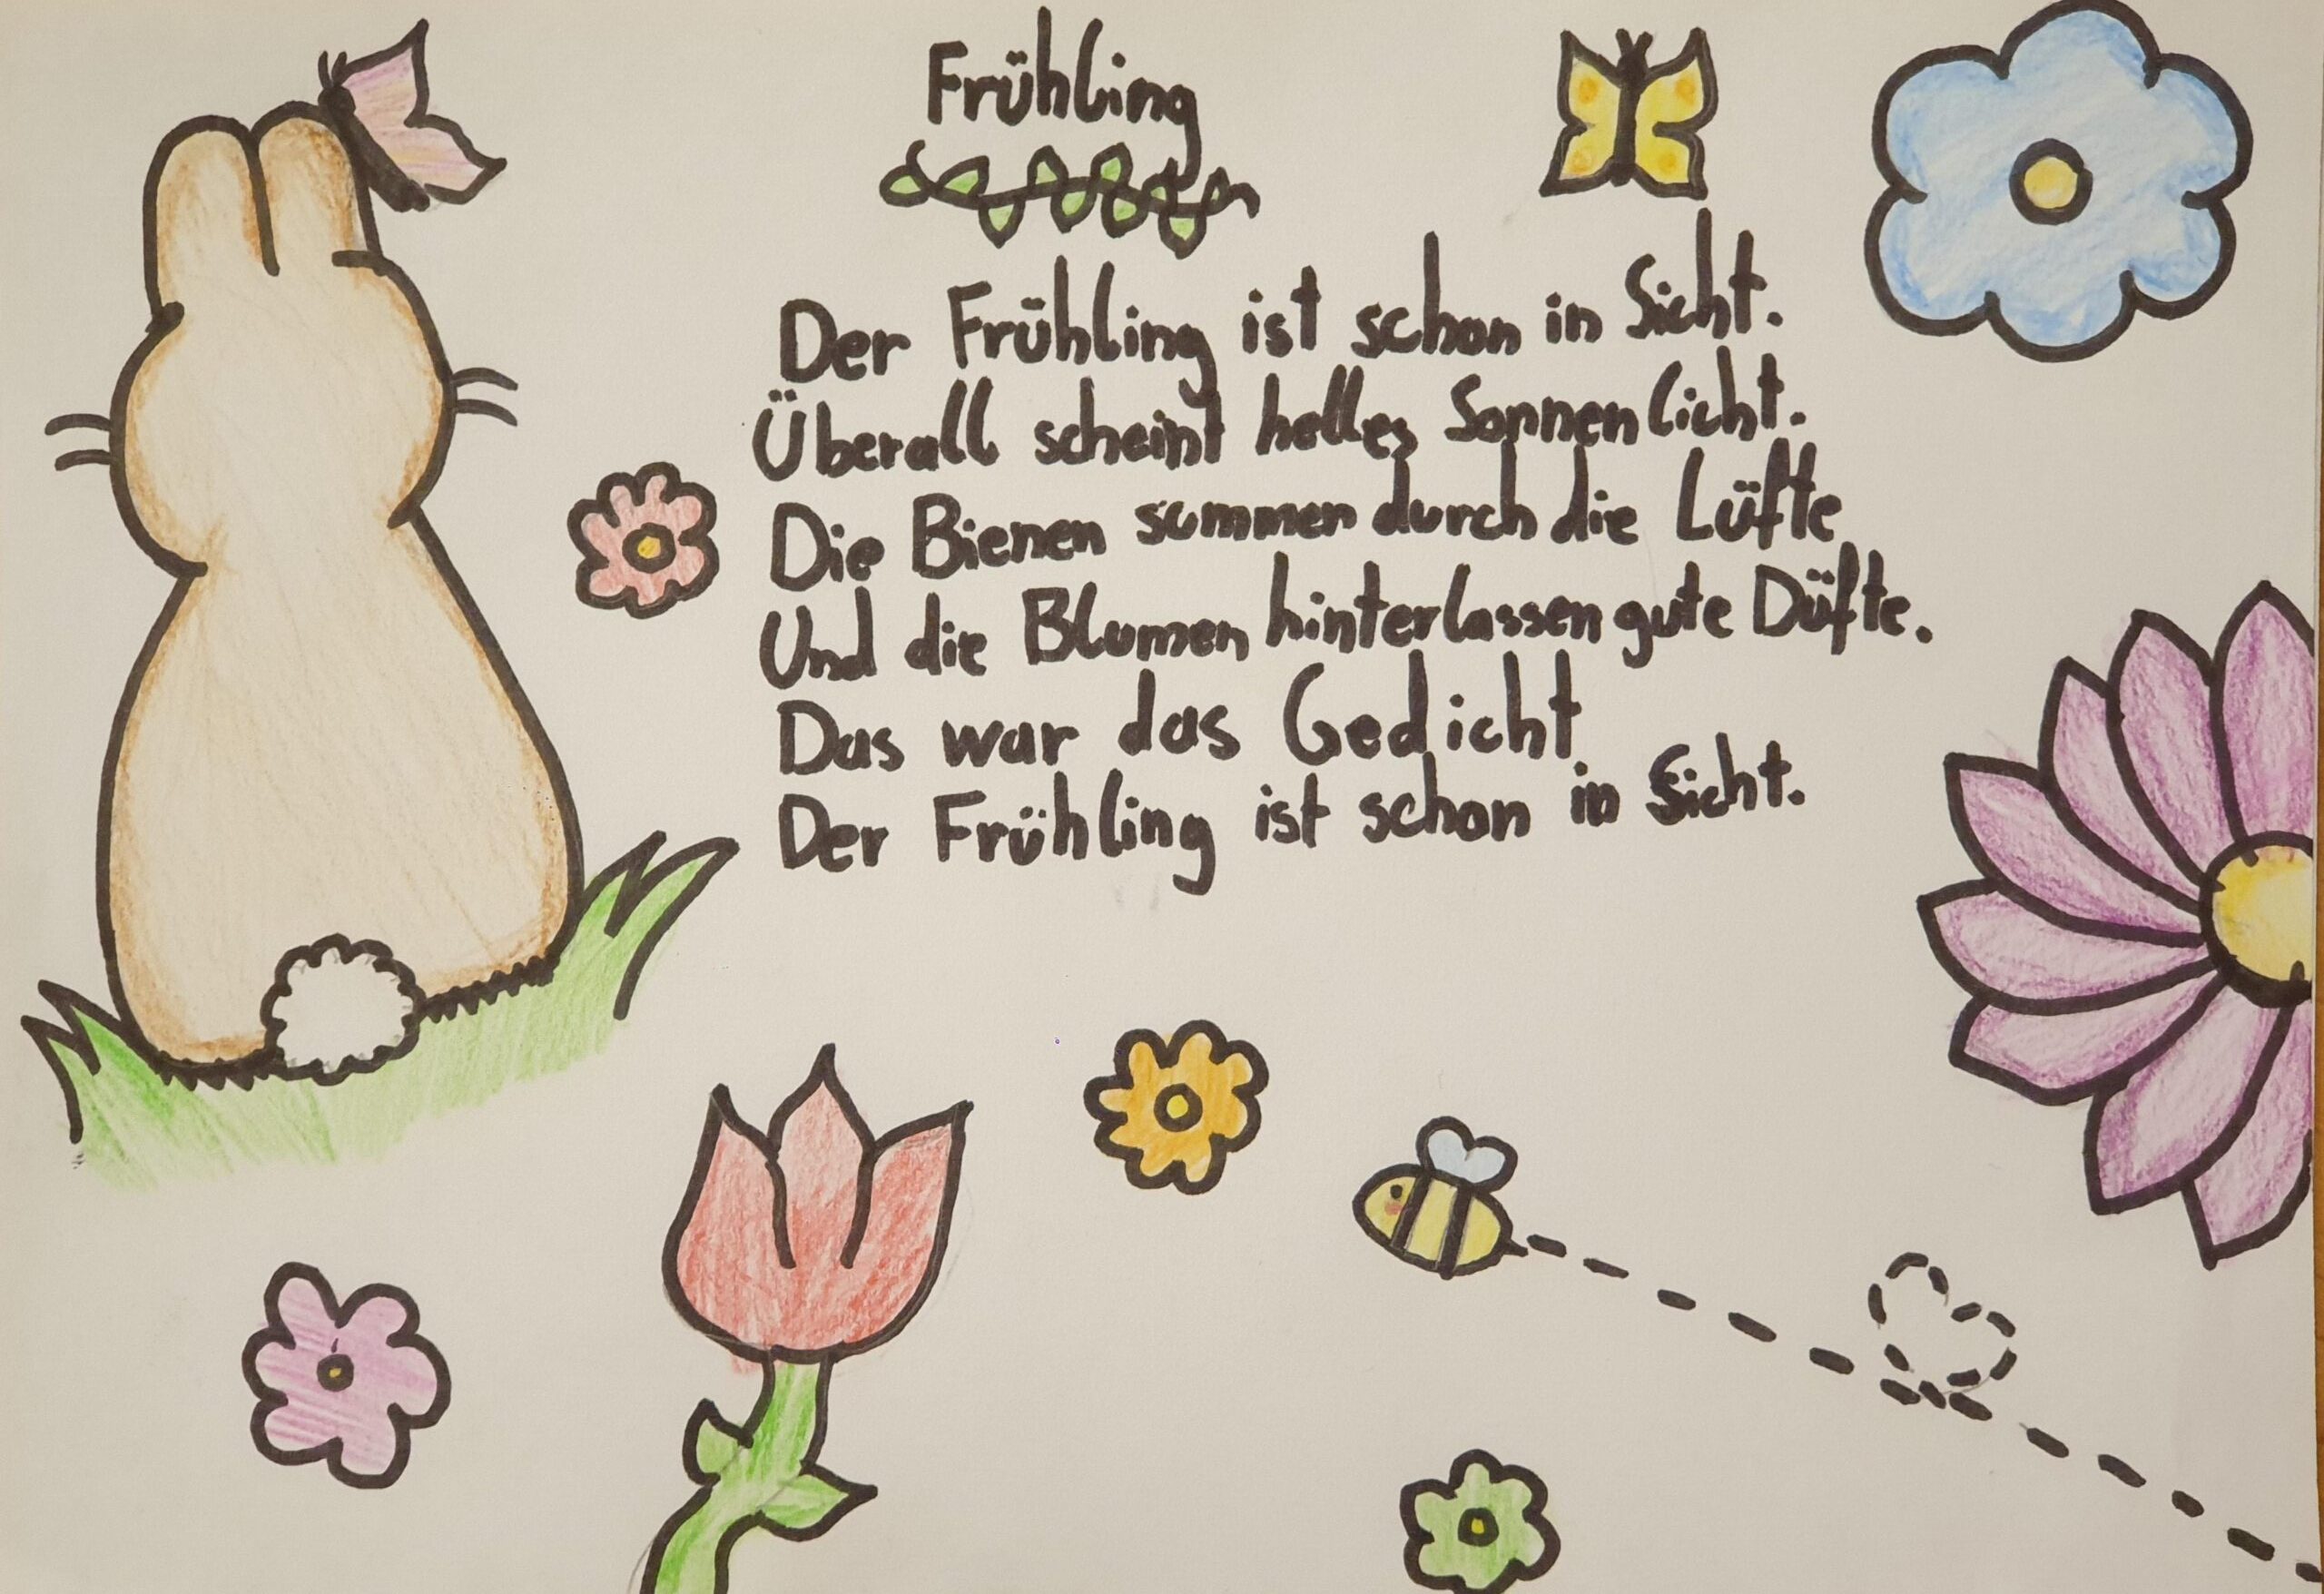 Frühling
Der Frühling ist schon in Sicht.
Überall scheint helles Sonnenlicht.
Die Bienen summen durch die Lüfte
Und die Blumen hinterlassen gute Düfte.
Das war das Gedicht
Der Frühling ist schon in Sicht.